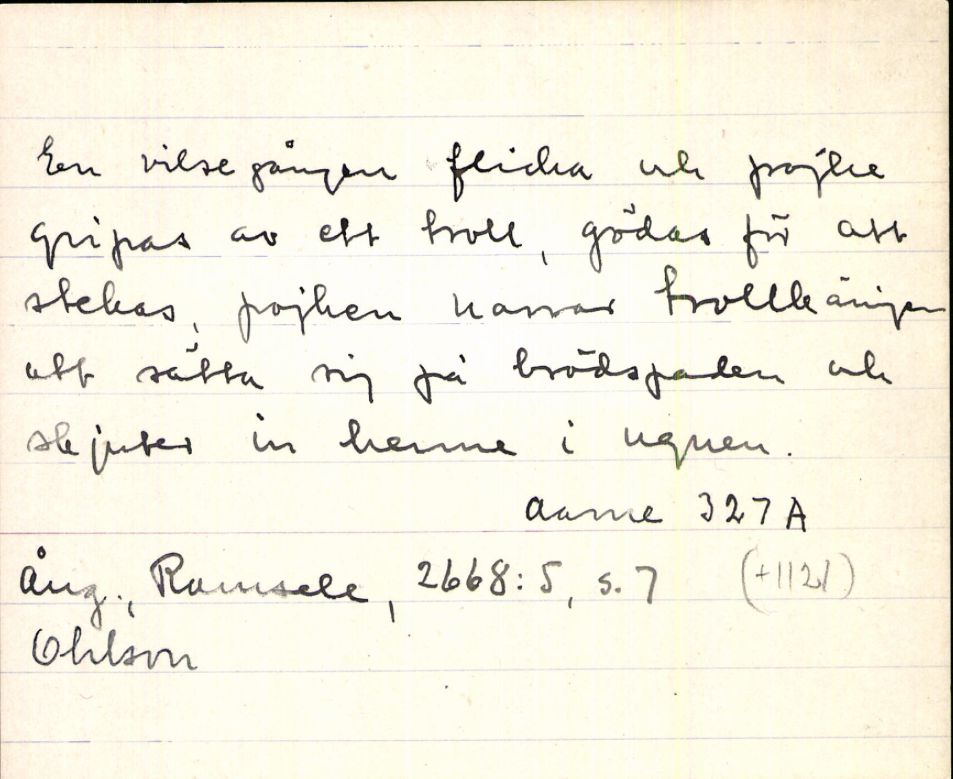 En vilsegången flicka och pojke
gripas av ett troll, gödas för att
stekas, pojken narrar trollkäringen
att sätta sig på brödspaden och
skjuter in henne i ugnen.
Aarne 327A
Ång., Ramsele, 2668:5, s. 7 (+1121)
Ohlson